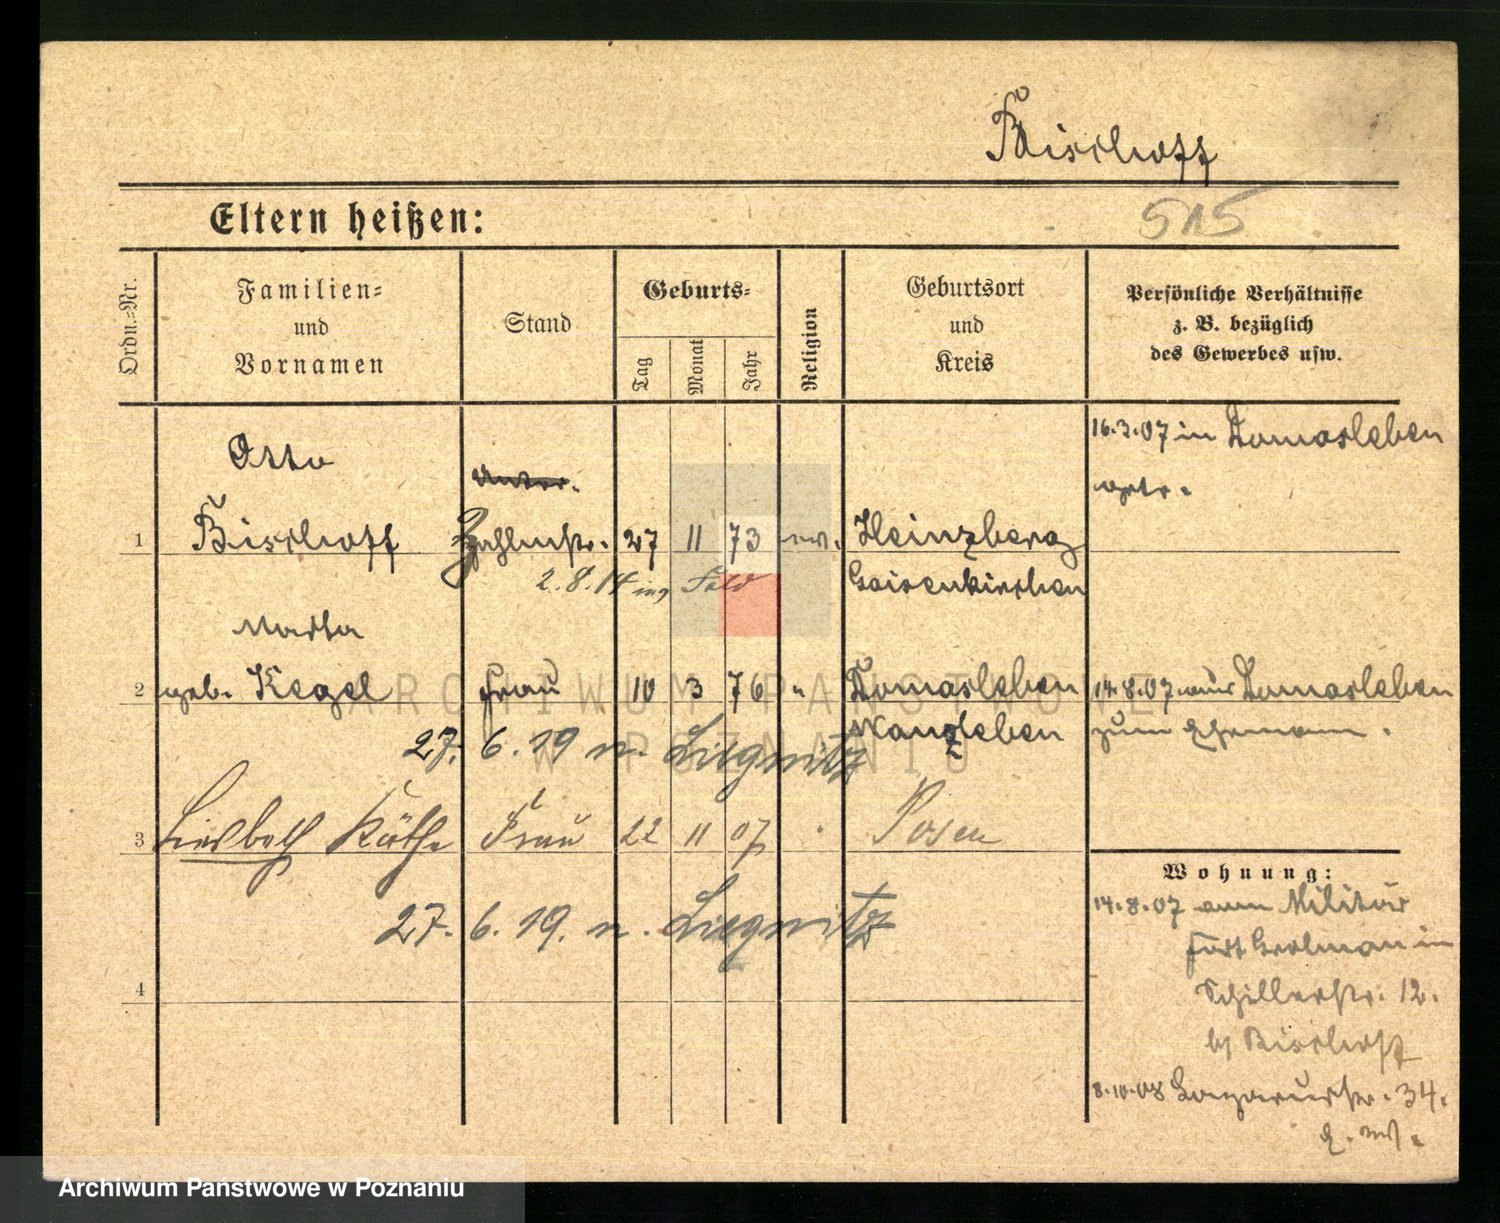 Bischoff
Eltern heißen:
515
Ordn.=Nr.
Familien=
und
Vornamen
Stand
Geburts=
Tag
Monat
Jahr
Religion
Geburtsort
und
Kreis
Persönliche Verhältnisse
z. B. bezüglich
des Gewerbes usw.
Otto
1 Bischoff Zahlmstr. 27 11 73 ev. Heinzberg
2.8.14 ins Feld
16.3.07 in Domersleben
getr.
Martha
2 geb. Kegel Frau 10 3 76 " Domersleben
Wanzleben
27. 6. 19 n. Liegnitz
14.8.07 aus Domersleben
zum Ehemann.
3 Liesbeth Käthe 22 11 07 " Posen
27. 6. 19. n. Liegnitz
4
Wohnung:
14.8.07 vom Militär
Fort Grolman in
Schillerstr. 12.
bei Bischoff
8.10.08 Lazarusstr. 34.
ARCHIWUM PAŃSTWOWE
W POZNANIU
Archiwum Państwowe w Poznaniu